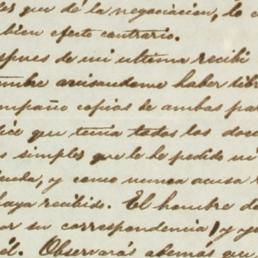 que de la negociacion, lo
bien efecto contrario.
spues de mi ultima recibí
mbre avisandome haber libr
mpaño copias de ambas par
ice que tenia todos los docu
s simples que le he pedido un
uda, y como nunca acusa
haya recibido. El hombre de
or su correspondencia, y ya
él. Observarás ademas que